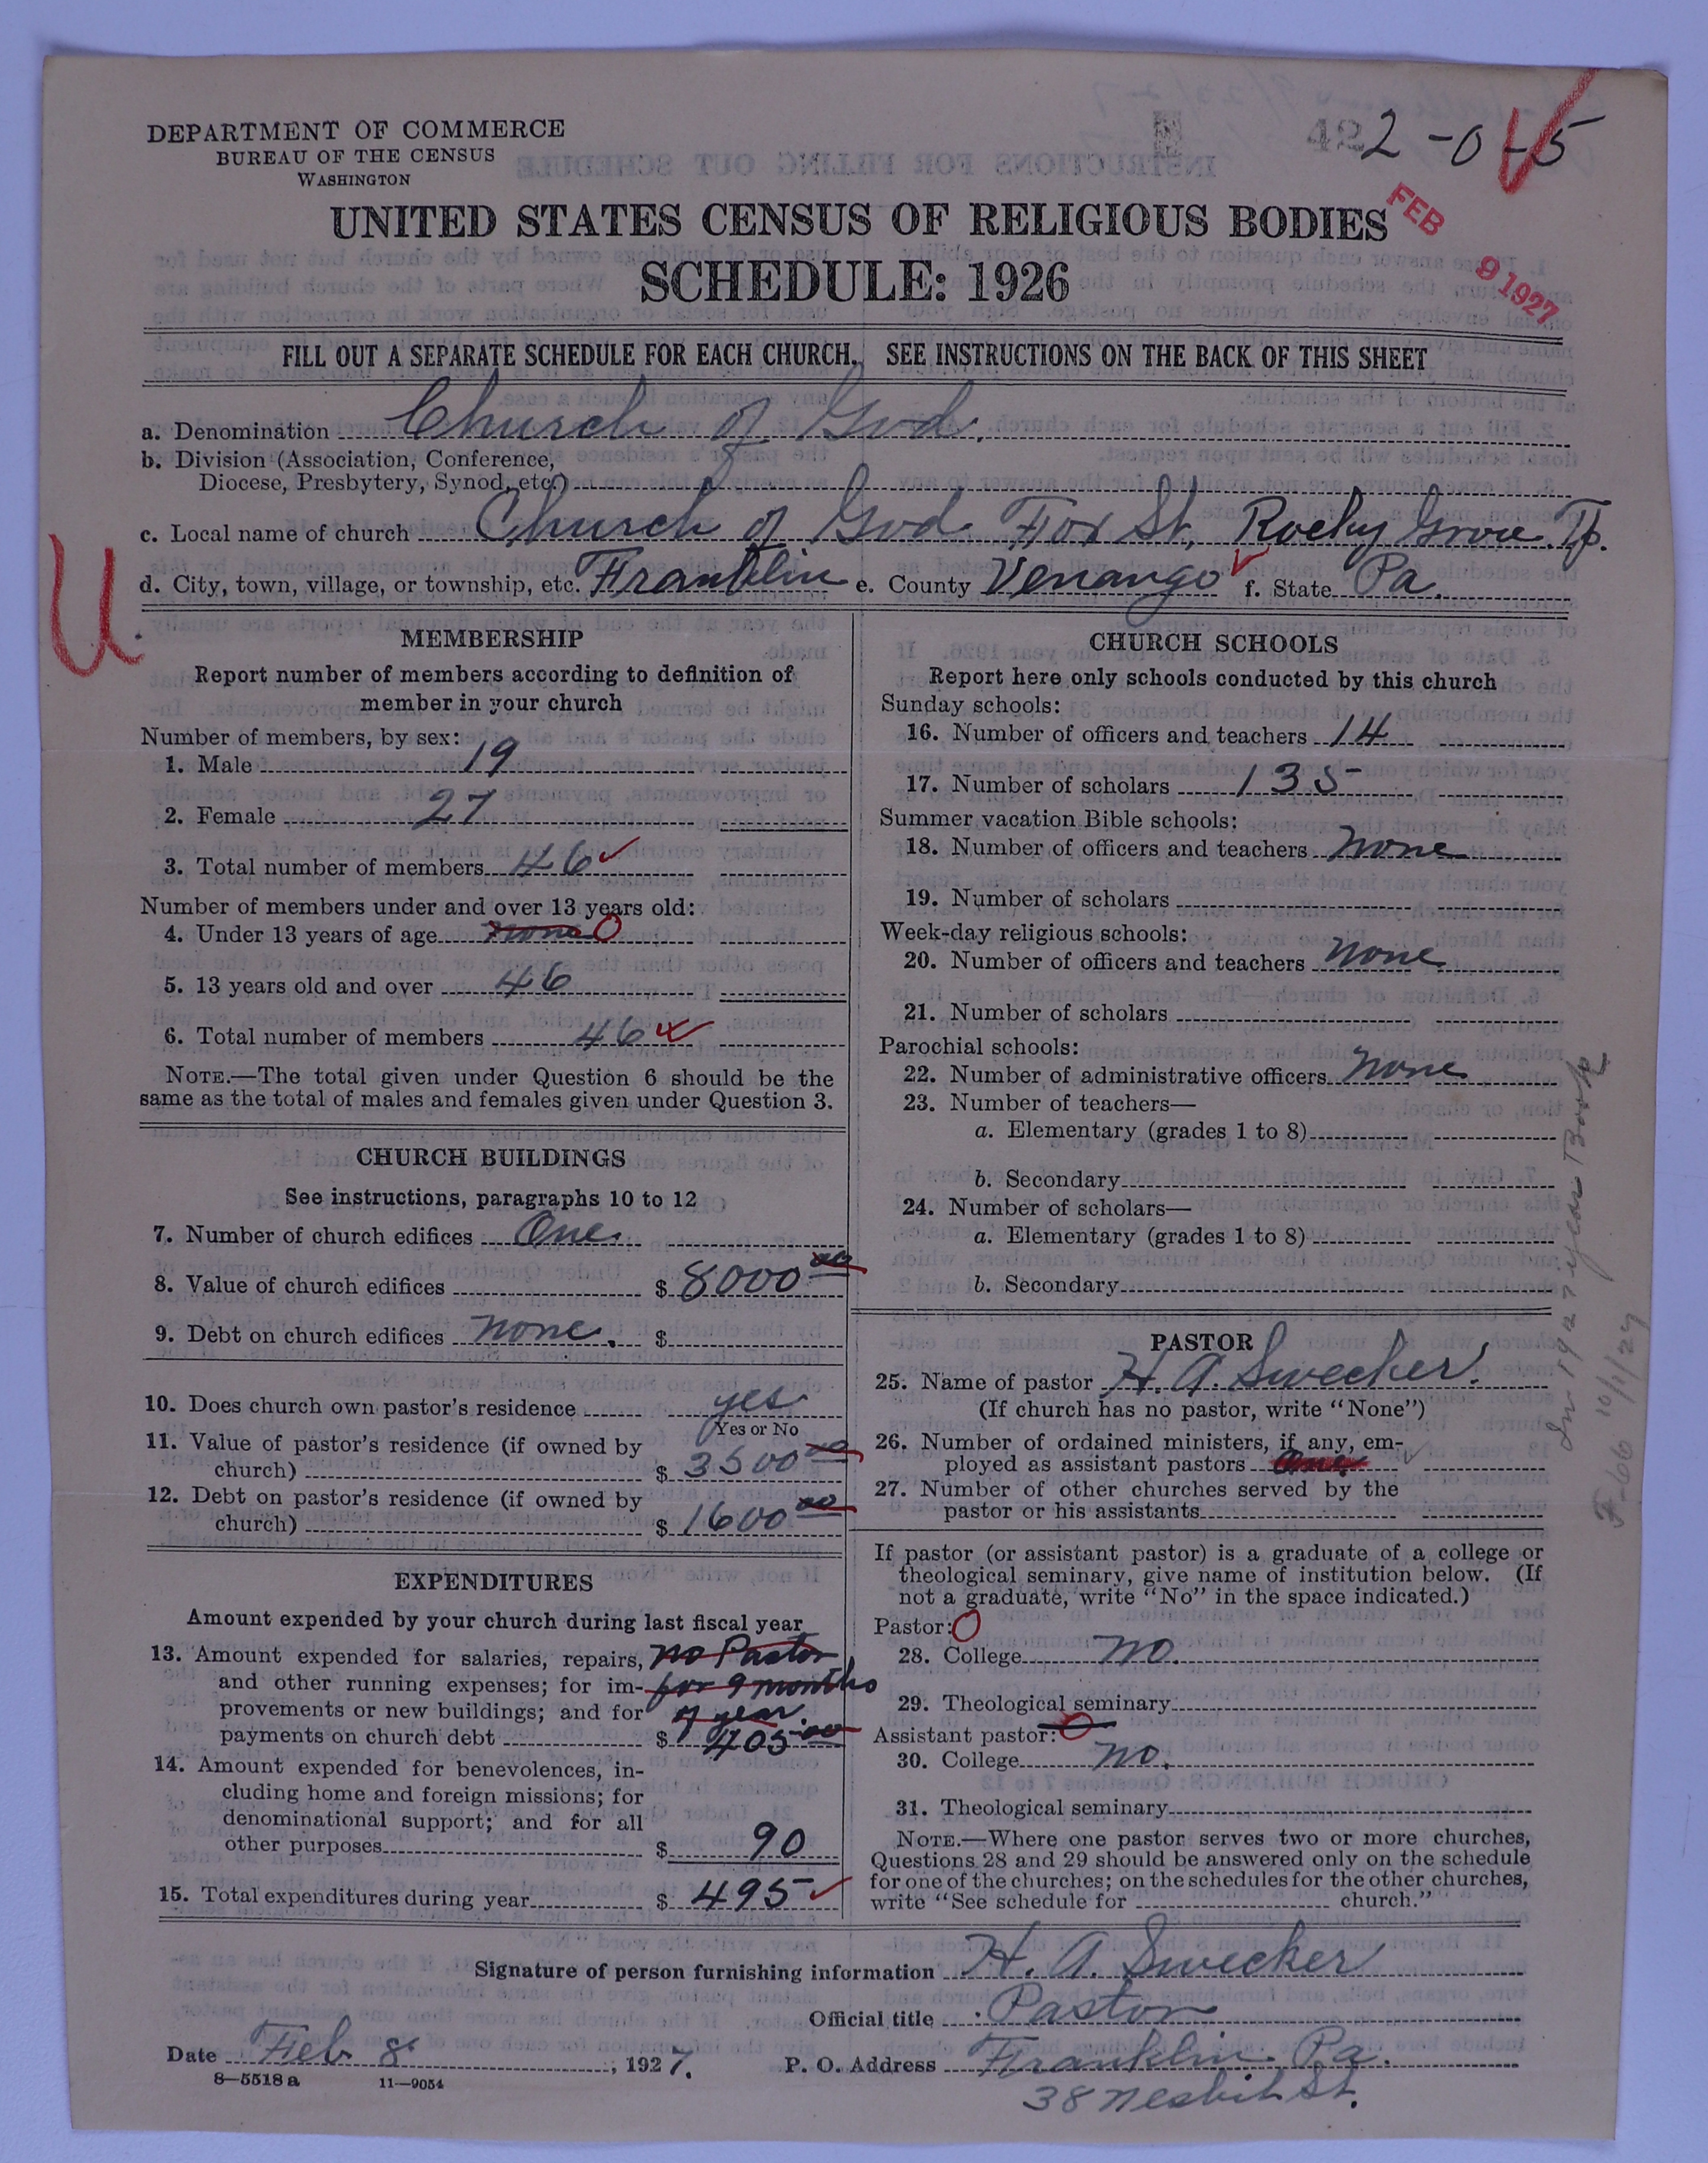 DEPARTMENT OF COMMERCE
BUREAU OF THE CENSUS
WASHINGTON
422-0-5
UNITED STATES CENSUS OF RELIGIOUS BODIES
SCHEDULE: 1926
FEB 9 1927
FILL OUT A SEPARATE SCHEDULE FOR EACH CHURCH. SEE INSTRUCTIONS ON THE BACK OF THIS SHEET
a. Denomination Church of God.
b. Division (Association, Conference,
Diocese, Presbytery, Synod, etc.)
c. Local name of church Church of God Fox St, Rocky Grove. Tp.
d. City, town, village, or township, etc. Franklin e. County Venango f. State Pa.
U
MEMBERSHIP
Report number of members according to definition of
member in your church
Number of members, by sex:
1. Male 19
2. Female 27
3. Total number of members 46
Number of members under and over 13 years old:
4. Under 13 years of age none 0
5. 13 years old and over 46
6. Total number of members 46
NOTE.—The total given under Question 6 should be the
same as the total of males and females given under Question 3.
CHURCH BUILDINGS
See instructions, paragraphs 10 to 12
7. Number of church edifices One.
8. Value of church edifices $ 8000 00
9. Debt on church edifices none. $
10. Does church own pastor's residence yes
Yes or No
11. Value of pastor's residence (if owned by
church) $ 3500 00
12. Debt on pastor's residence (if owned by
church) $ 1600 00
EXPENDITURES
Amount expended by your church during last fiscal year
13. Amount expended for salaries, repairs, no Pastor
and other running expenses; for im- for 9 months
provements or new buildings; and for of year.
payments on church debt $ 405 00
14. Amount expended for benevolences, in-
cluding home and foreign missions; for
denominational support; and for all
other purposes $ 90
15. Total expenditures during year $ 495
CHURCH SCHOOLS
Report here only schools conducted by this church
Sunday schools:
16. Number of officers and teachers 14
17. Number of scholars 135
Summer vacation Bible schools:
18. Number of officers and teachers none
19. Number of scholars
Week-day religious schools:
20. Number of officers and teachers none
21. Number of scholars
Parochial schools:
22. Number of administrative officers none
23. Number of teachers—
a. Elementary (grades 1 to 8)
b. Secondary
24. Number of scholars—
a. Elementary (grades 1 to 8)
b. Secondary
PASTOR
25. Name of pastor H. A. Swecker.
(If church has no pastor, write "None")
26. Number of ordained ministers, if any, em-
ployed as assistant pastors One
27. Number of other churches served by the
pastor or his assistants
If pastor (or assistant pastor) is a graduate of a college or
theological seminary, give name of institution below. (If
not a graduate, write "No" in the space indicated.)
Pastor: 0
28. College no.
29. Theological seminary
Assistant pastor: 0
30. College no.
31. Theological seminary
NOTE.—Where one pastor serves two or more churches,
Questions 28 and 29 should be answered only on the schedule
for one of the churches; on the schedules for the other churches,
write "See schedule for church."
In 1927 year Book
F-66 10/1/27
Signature of person furnishing information H. A. Swecker
Official title Pastor
Date Feb 8, 1927. P. O. Address Franklin Pa.
38 Nesbit St.
8—5518 a 11—9054